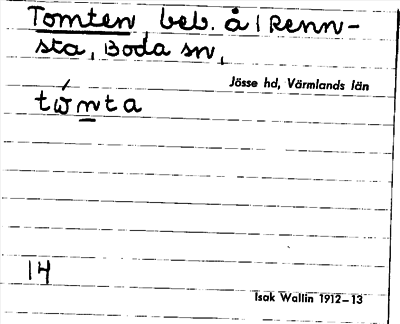 Tomten beb. å / Renn-
sta, Boda sn,
Jösse hd, Värmlands län
tώnta
14
Isak Wallin 1912–13